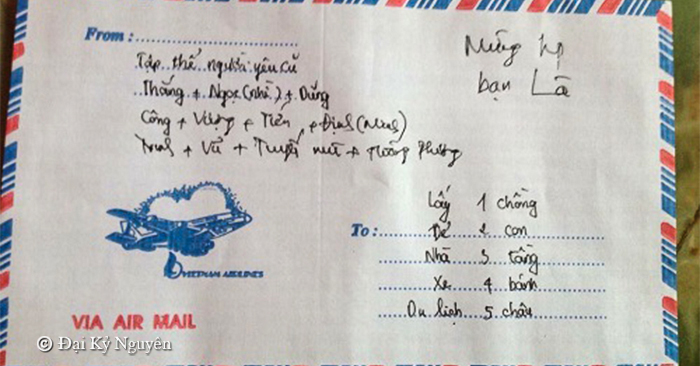 From :
Tập thể người yêu cũ
Thắng + Ngọc (nhà) + Dũng
Công + Vượng + Tiến + Định (Ninh)
+ Vũ + +
Mừng hp
bạn Là
To :
Lấy 1 chồng
Đẻ 2 con
Nhà 3 tầng
Xe 4 bánh
Du lịch 5 châu
VIETNAM AIRLINES
VIA AIR MAIL
© Đại Kỷ Nguyên